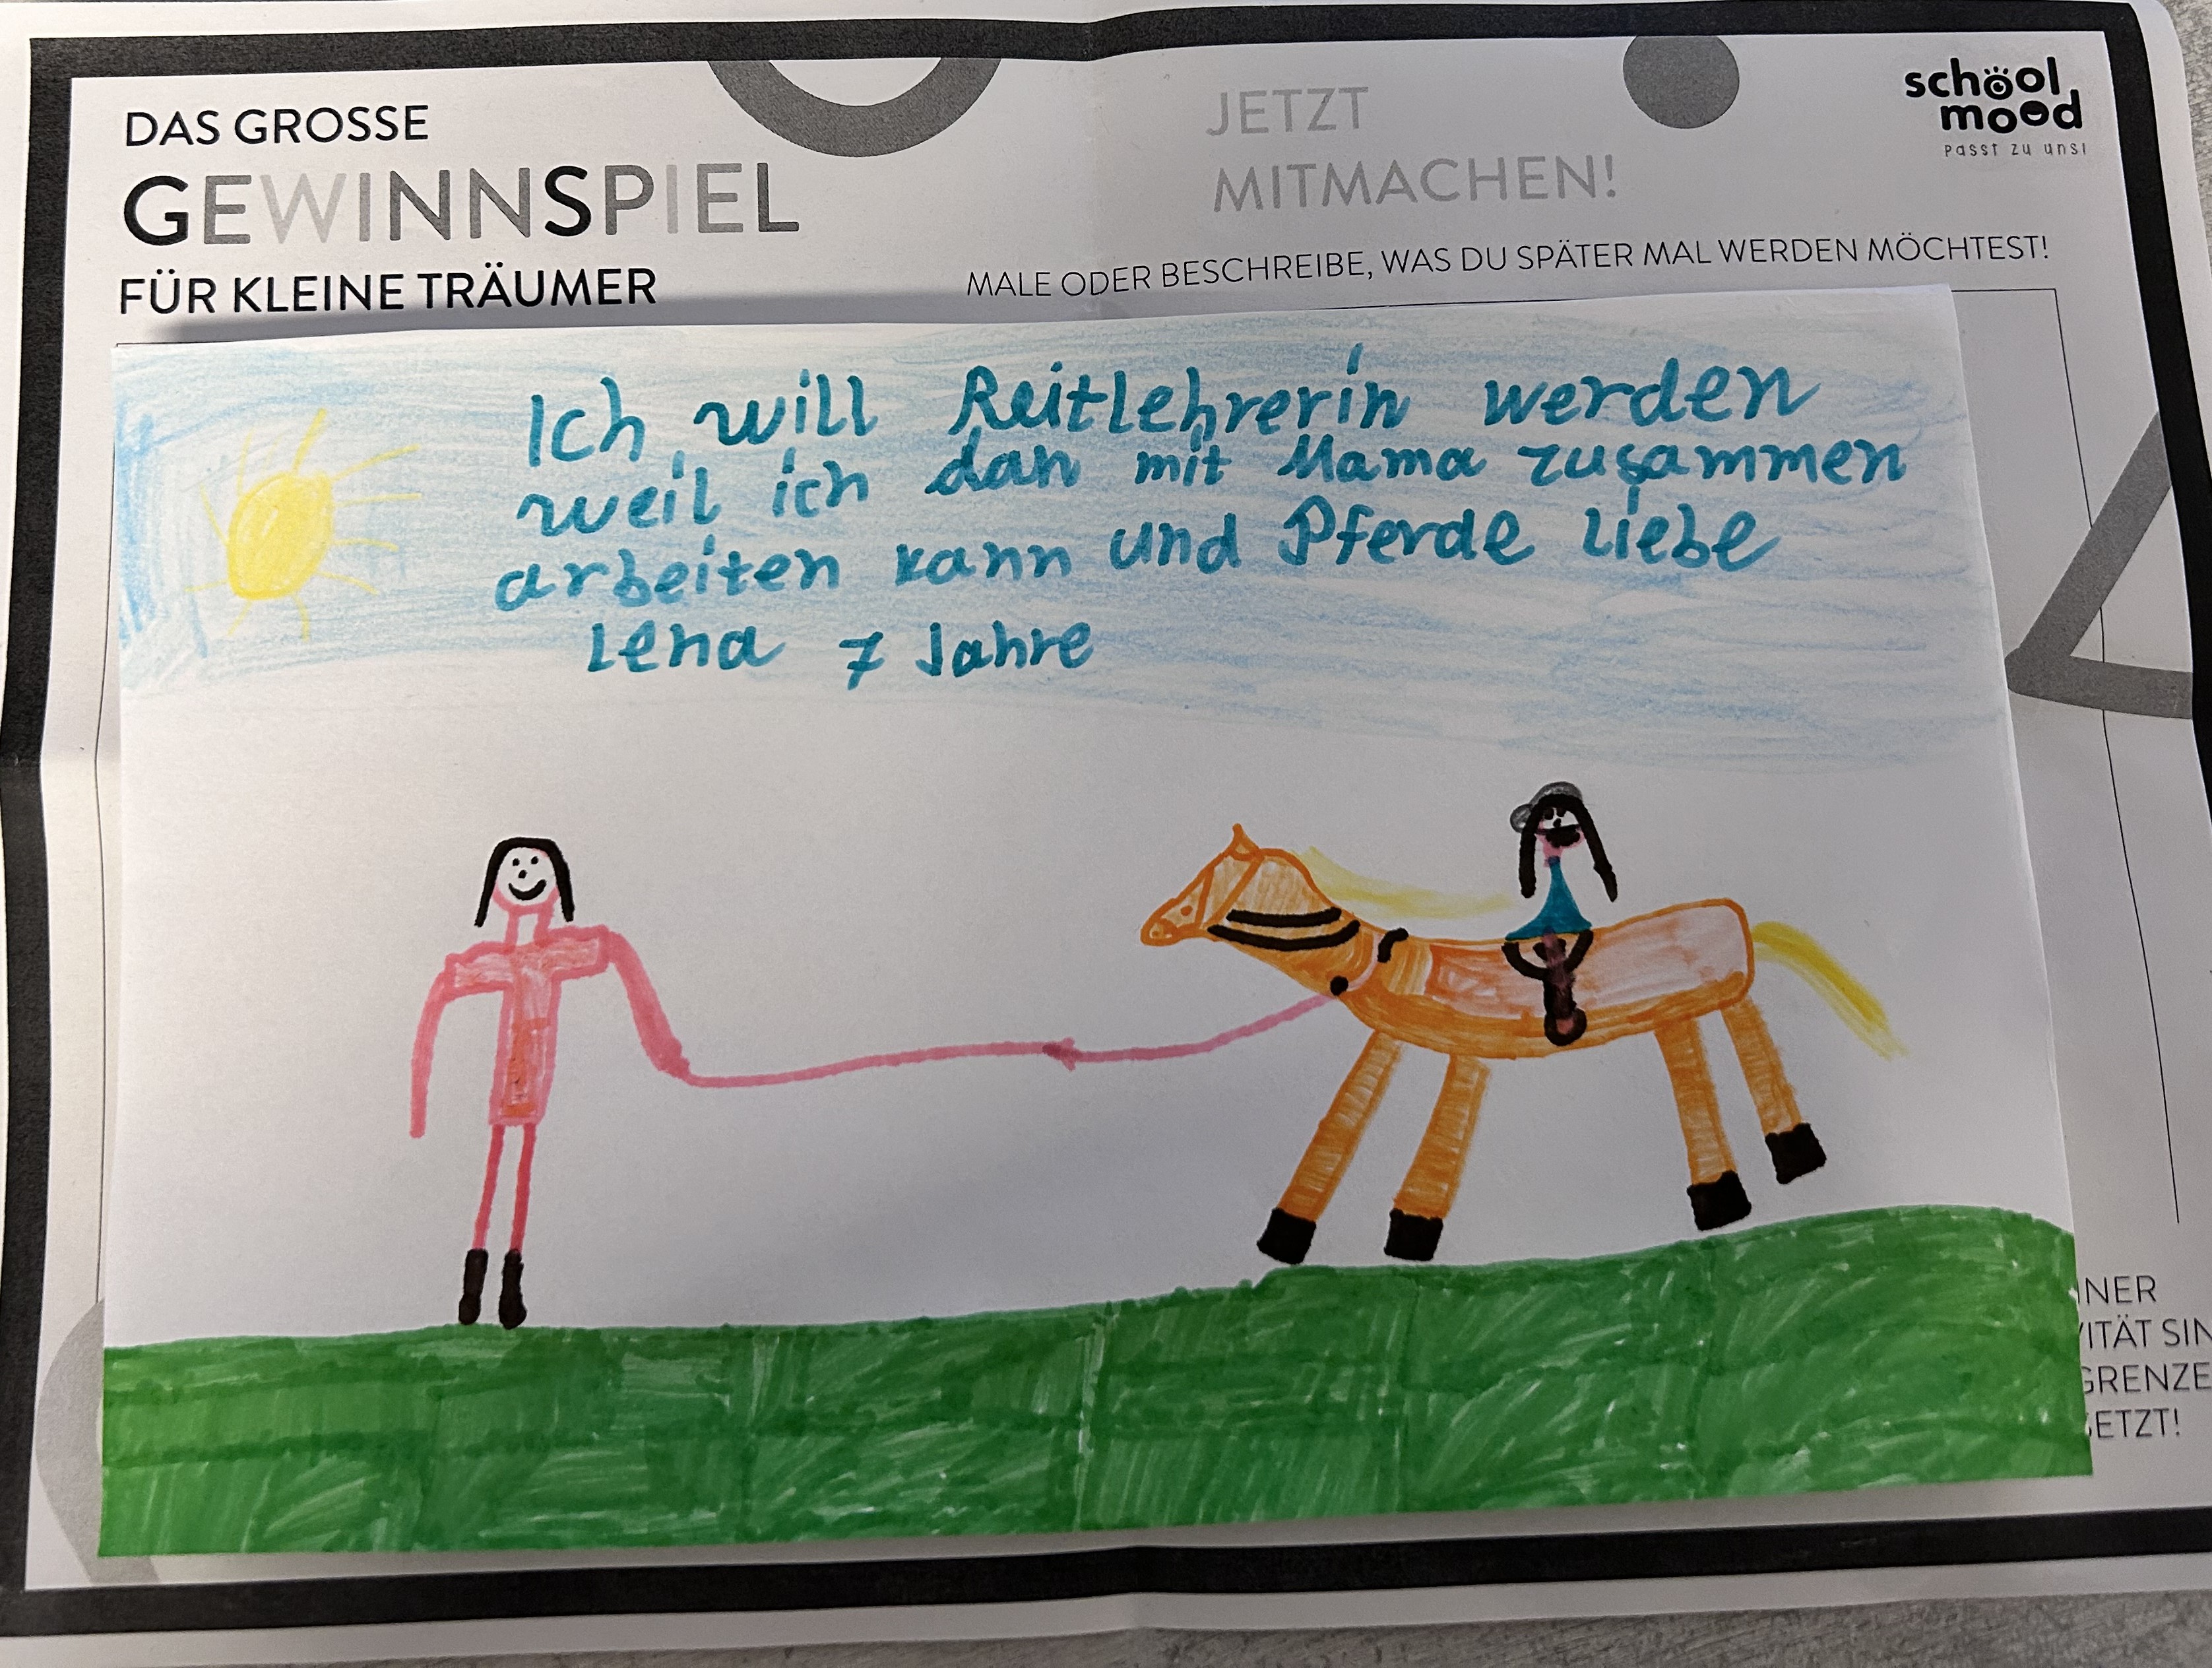 DAS GROSSE
GEWINNSPIEL
FÜR KLEINE TRÄUMER
JETZT
MITMACHEN!
school
mood
passt zu uns!
MALE ODER BESCHREIBE, WAS DU SPÄTER MAL WERDEN MÖCHTEST!
Ich will Reitlehrerin werden
weil ich dan mit Mama zusammen
arbeiten kann und Pferde liebe
Lena 7 Jahre
INER
ITÄT SIN
GRENZE
SETZT!